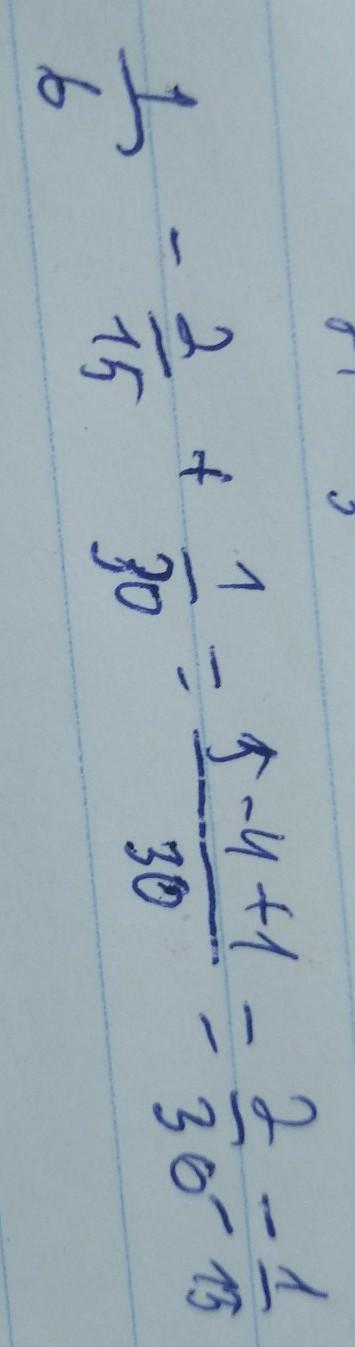 1/6 - 2/15 + 1/30 = (5-4+1)/30 = 2/30 = 1/15